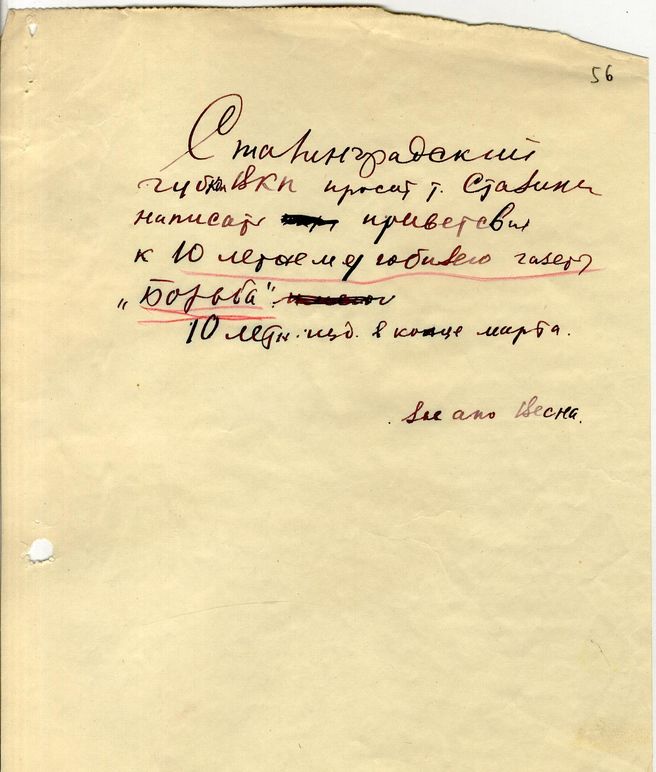 56
Сталинградский
губком ВКП просит т. Сталина
написать приветствия
к 10 летнему юбилею газеты
„Борьба".
10 летн. изд. в конце марта.